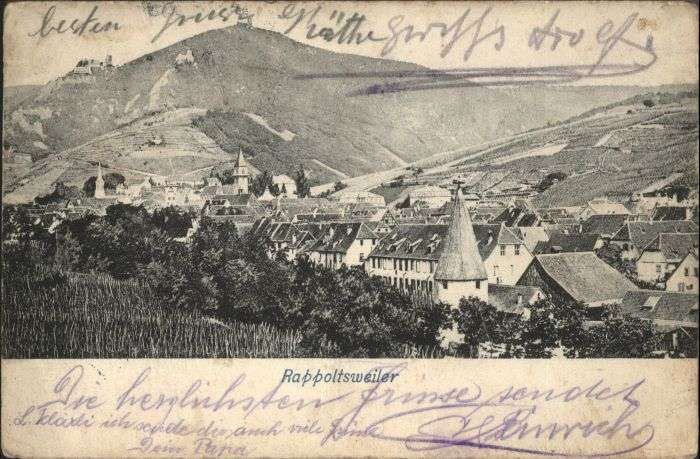 besten Gruss Käthe
Rappoltsweiler
Die herzlichsten Grüsse sendet
Heinrich
ich sende dir auch viele Grüsse
Dein Papa